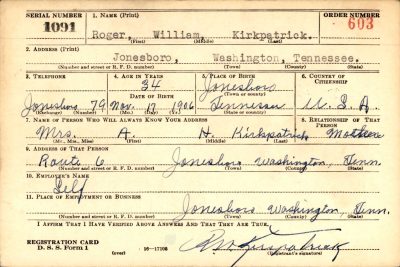 SERIAL NUMBER 1. NAME (Print) ORDER NUMBER
1091 Roger, William, Kirkpatrick. 603
(First) (Middle) (Last)
2. ADDRESS (Print)
Jonesboro, Washington, Tennessee.
(Number and street or R. F. D. number) (Town) (County) (State)
3. TELEPHONE 4. AGE IN YEARS 5. PLACE OF BIRTH 6. COUNTRY OF CITIZENSHIP
34 Jonesboro
DATE OF BIRTH (Town or county)
Jonesboro 79 Nov. 17 1906 Tennessee U. S. A.
(Exchange) (Number) (Mo.) (Day) (Yr.) (State or country)
7. NAME OF PERSON WHO WILL ALWAYS KNOW YOUR ADDRESS 8. RELATIONSHIP OF THAT PERSON
Mrs. A. H. Kirkpatrick Mother
(Mr., Mrs., Miss) (First) (Middle) (Last)
9. ADDRESS OF THAT PERSON
Route 6 Jonesboro Washington, Tenn.
(Number and street or R. F. D. number) (Town) (County) (State)
10. EMPLOYER'S NAME
Self
11. PLACE OF EMPLOYMENT OR BUSINESS
Jonesboro Washington, Tenn.
(Number and street or R. F. D. number) (Town) (County) (State)
I AFFIRM THAT I HAVE VERIFIED ABOVE ANSWERS AND THAT THEY ARE TRUE.
REGISTRATION CARD
D. S. S. Form 1 (over) 16-17105 R W Kirkpatrick
(Registrant's signature)